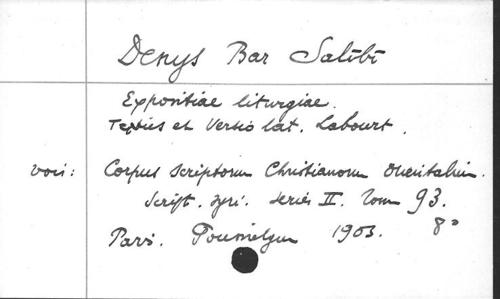 Denys Bar Salibi
Expositiae liturgiae.
Textus et versio lat. Labourt.
voir: Corpus scriptorum Christianorum Orientalium.
Script. syri. series II. Tom 93.
Paris. Poussielgue 1903. 8°